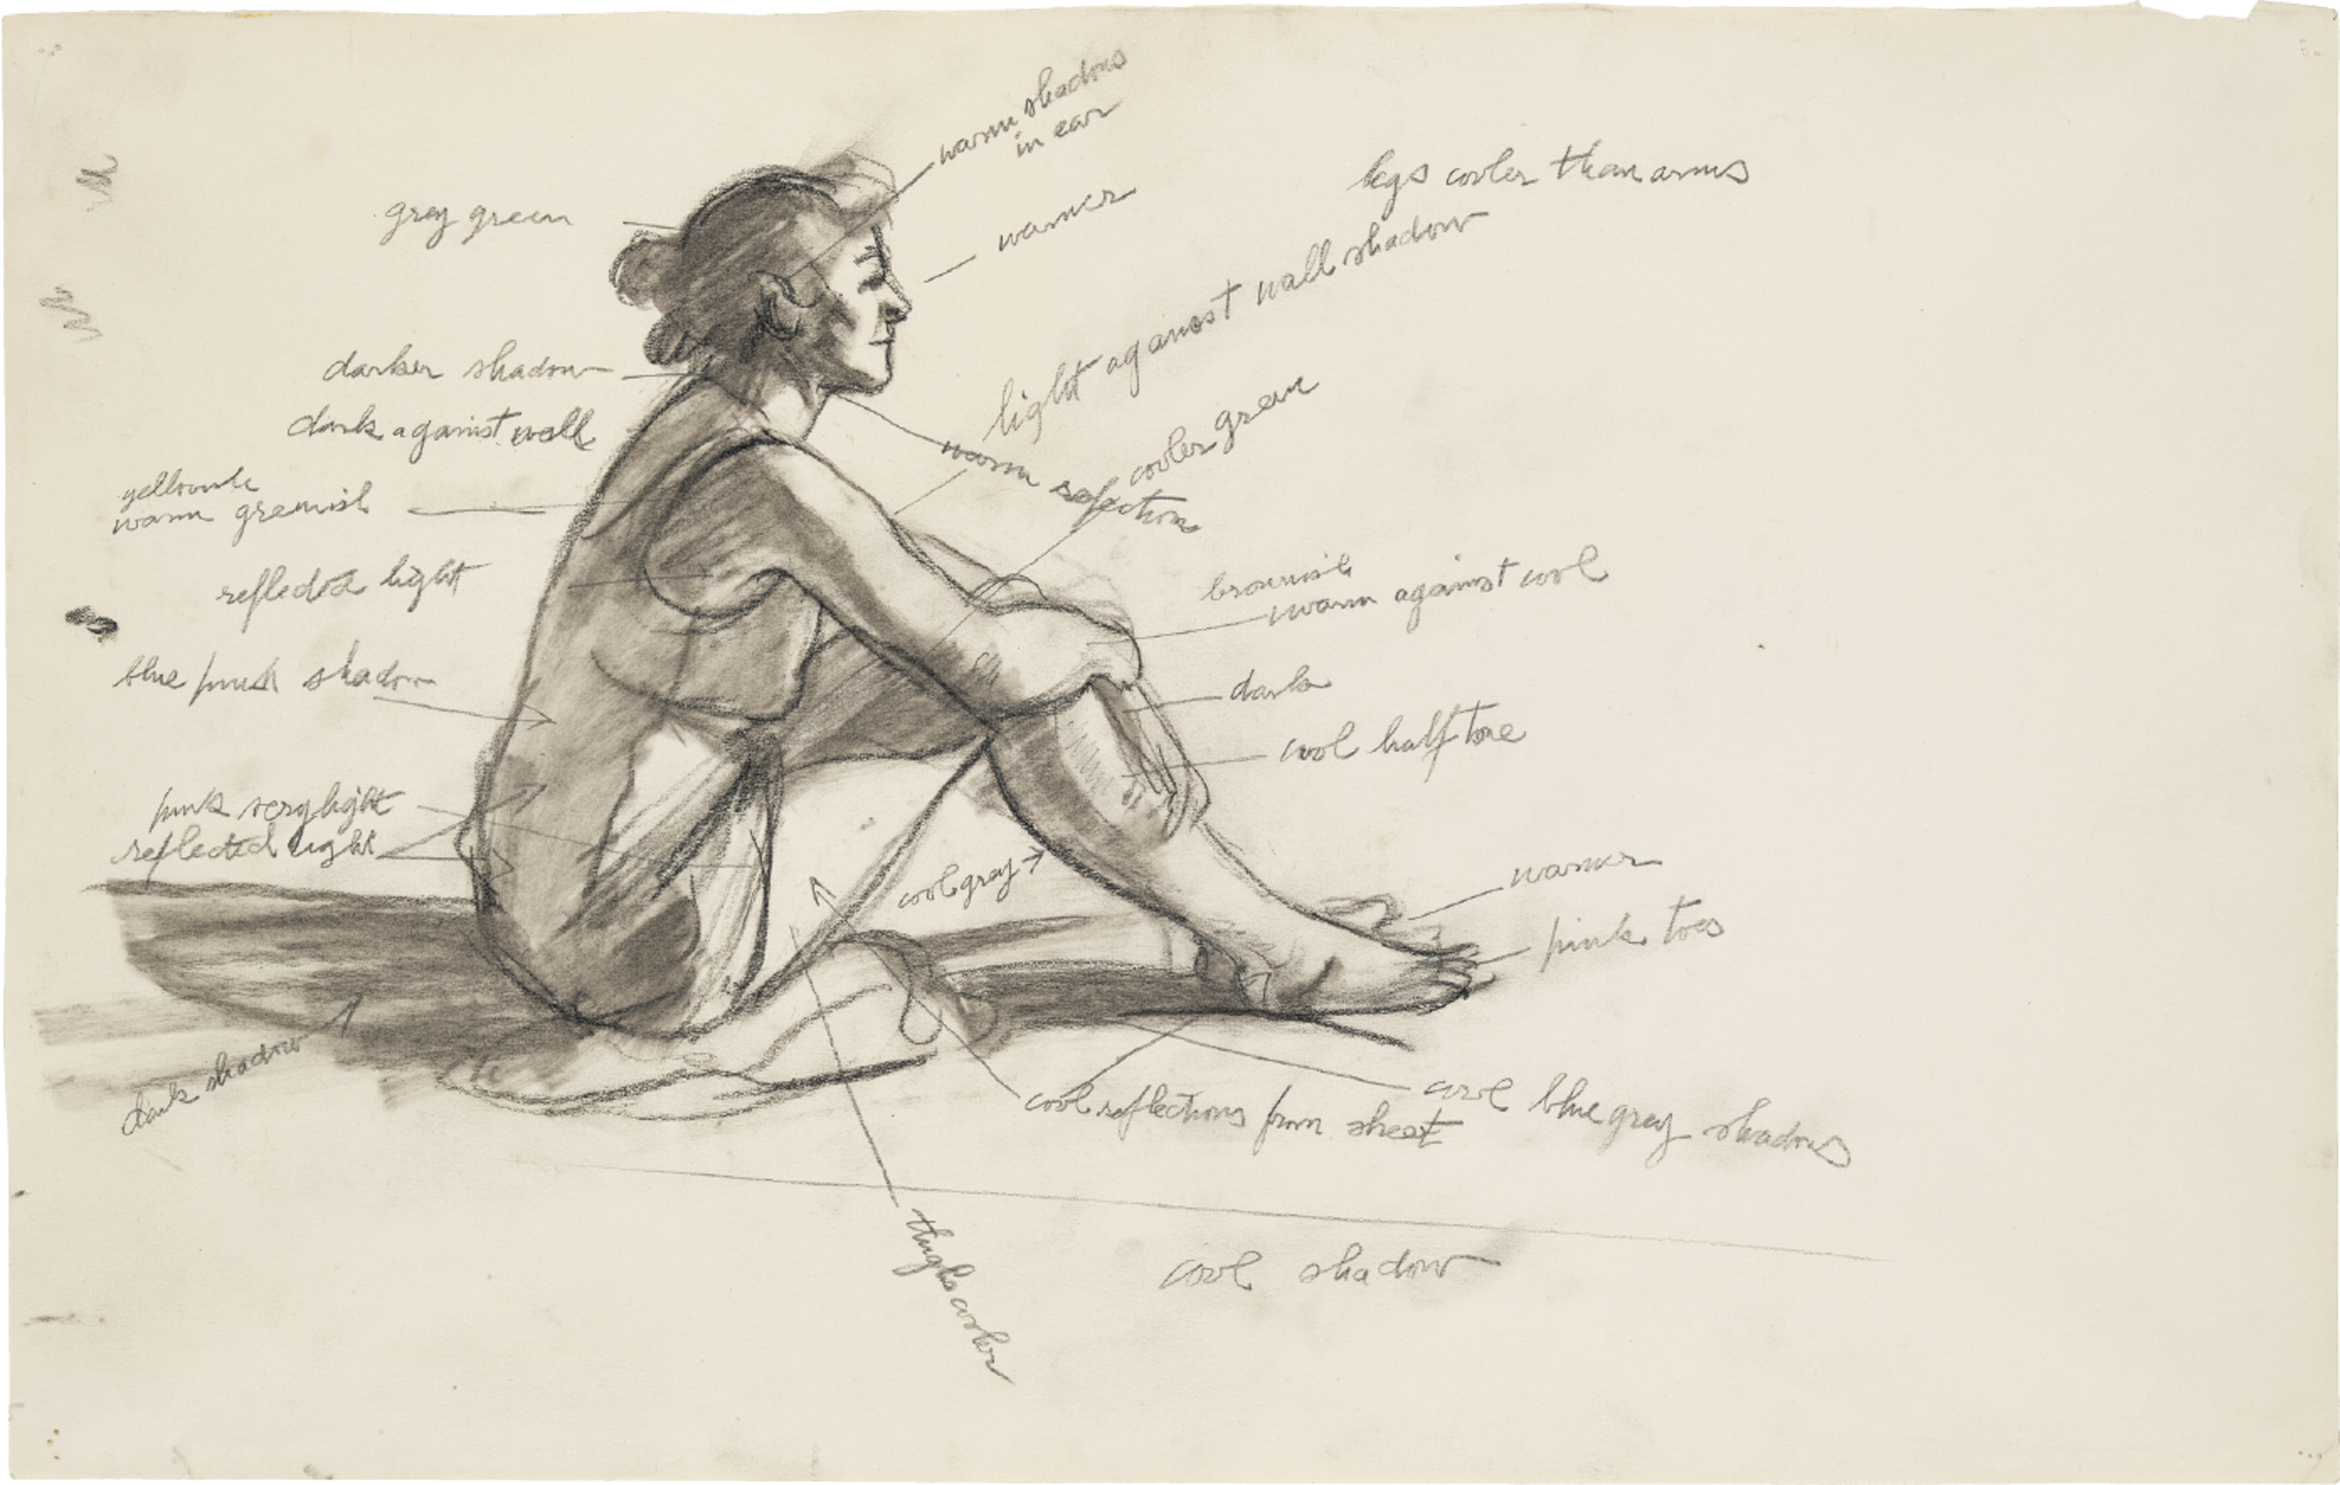 warm shadows
in ear
legs cooler than arms
grey green
warmer
light against wall shadow
darker shadow
dark against wall
cooler green
warm reflection
warm greenish
reflected light
brownish
warm against cool
blue shadow
dark
cool half tone
pink very light
reflected light
cool grey
warmer
pink toes
dark shadow
cool reflections from sheet
cool blue grey shadows
thighs cooler
cool shadow